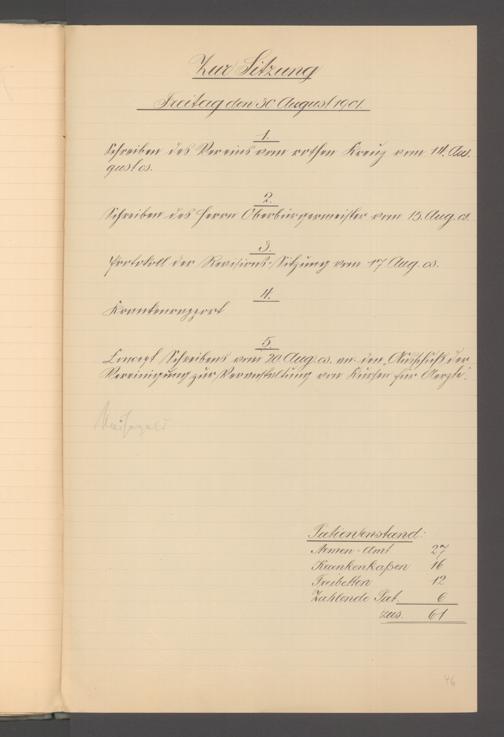 Zur Sitzung
Freitag den 30 August 1901
1.
Schreiben des Vereins vom rothen Kreuz vom 14. Au-
gust cs.
2.
Schreiben des Herrn Oberbürgermeister vom 13. Aug. cs.
3.
Protokoll der Revisions-Sitzung vom 17 Aug. cs.
4.
Krankenrapport
5.
Concept Schreibens vom 20 Aug. cs. an den Ausschuß der
Vereinigung zur Veranstaltung von Kursen für Aerzte.
Patientenstand:
Armen-Amt 27
Krankenkaßen 16
Freibetten 12
Zahlende Pat. 6
zus. 61
46